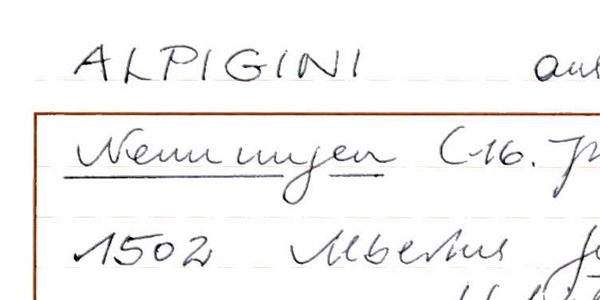 ALPIGINI aus
Nenningen (-16. J
1502 Albertus